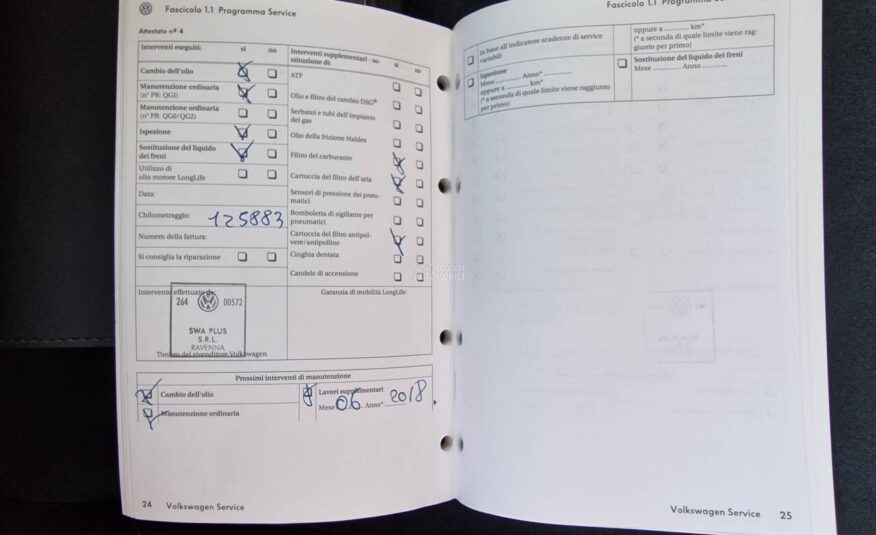 Fascicolo 1.1 Programma Service
Attestato nº 4
Interventi eseguiti:
si
no
Cambio dell'olio
Manutenzione ordinaria
(nº PR: QG1)
Manutenzione ordinaria
(nº PR: QG0/QG2)
Ispezione
Sostituzione del liquido
dei freni
Utilizzo di
olio motore LongLife
Data:
Chilometraggio: 125883
Numero della fattura:
Si consiglia la riparazione
Interventi supplementari - so-
stituzione di:
si
no
ATF
Olio e filtro del cambio DSG®
Serbatoi e tubi dell'impianto
del gas
Olio della frizione Haldex
Filtro del carburante
Cartuccia del filtro dell'aria
Sensori di pressione dei pneu-
matici
Bomboletta di sigillante per
pneumatici
Cartuccia del filtro antipol-
vere/antipolline
Cinghia dentata
Candele di accensione
Intervento effettuato da:
264 00572
SWA PLUS
S.R.L.
RAVENNA
Timbro del rivenditore Volkswagen
Garanzia di mobilità LongLife:
Prossimi interventi di manutenzione
Cambio dell'olio
Manutenzione ordinaria
Lavori supplementari
Mese 06 Anno* 2018
24 Volkswagen Service
Fascicolo 1.1 Programma
in base all'indicatore scadenze di service
variabili
Ispezione
Mese ........ Anno* ............
oppure a ............ km*
(* a seconda di quale limite viene raggiunto
per primo)
oppure a ............ km*
(* a seconda di quale limite viene rag-
giunto per primo)
Sostituzione del liquido dei freni
Mese ........ Anno ............
Volkswagen Service 25